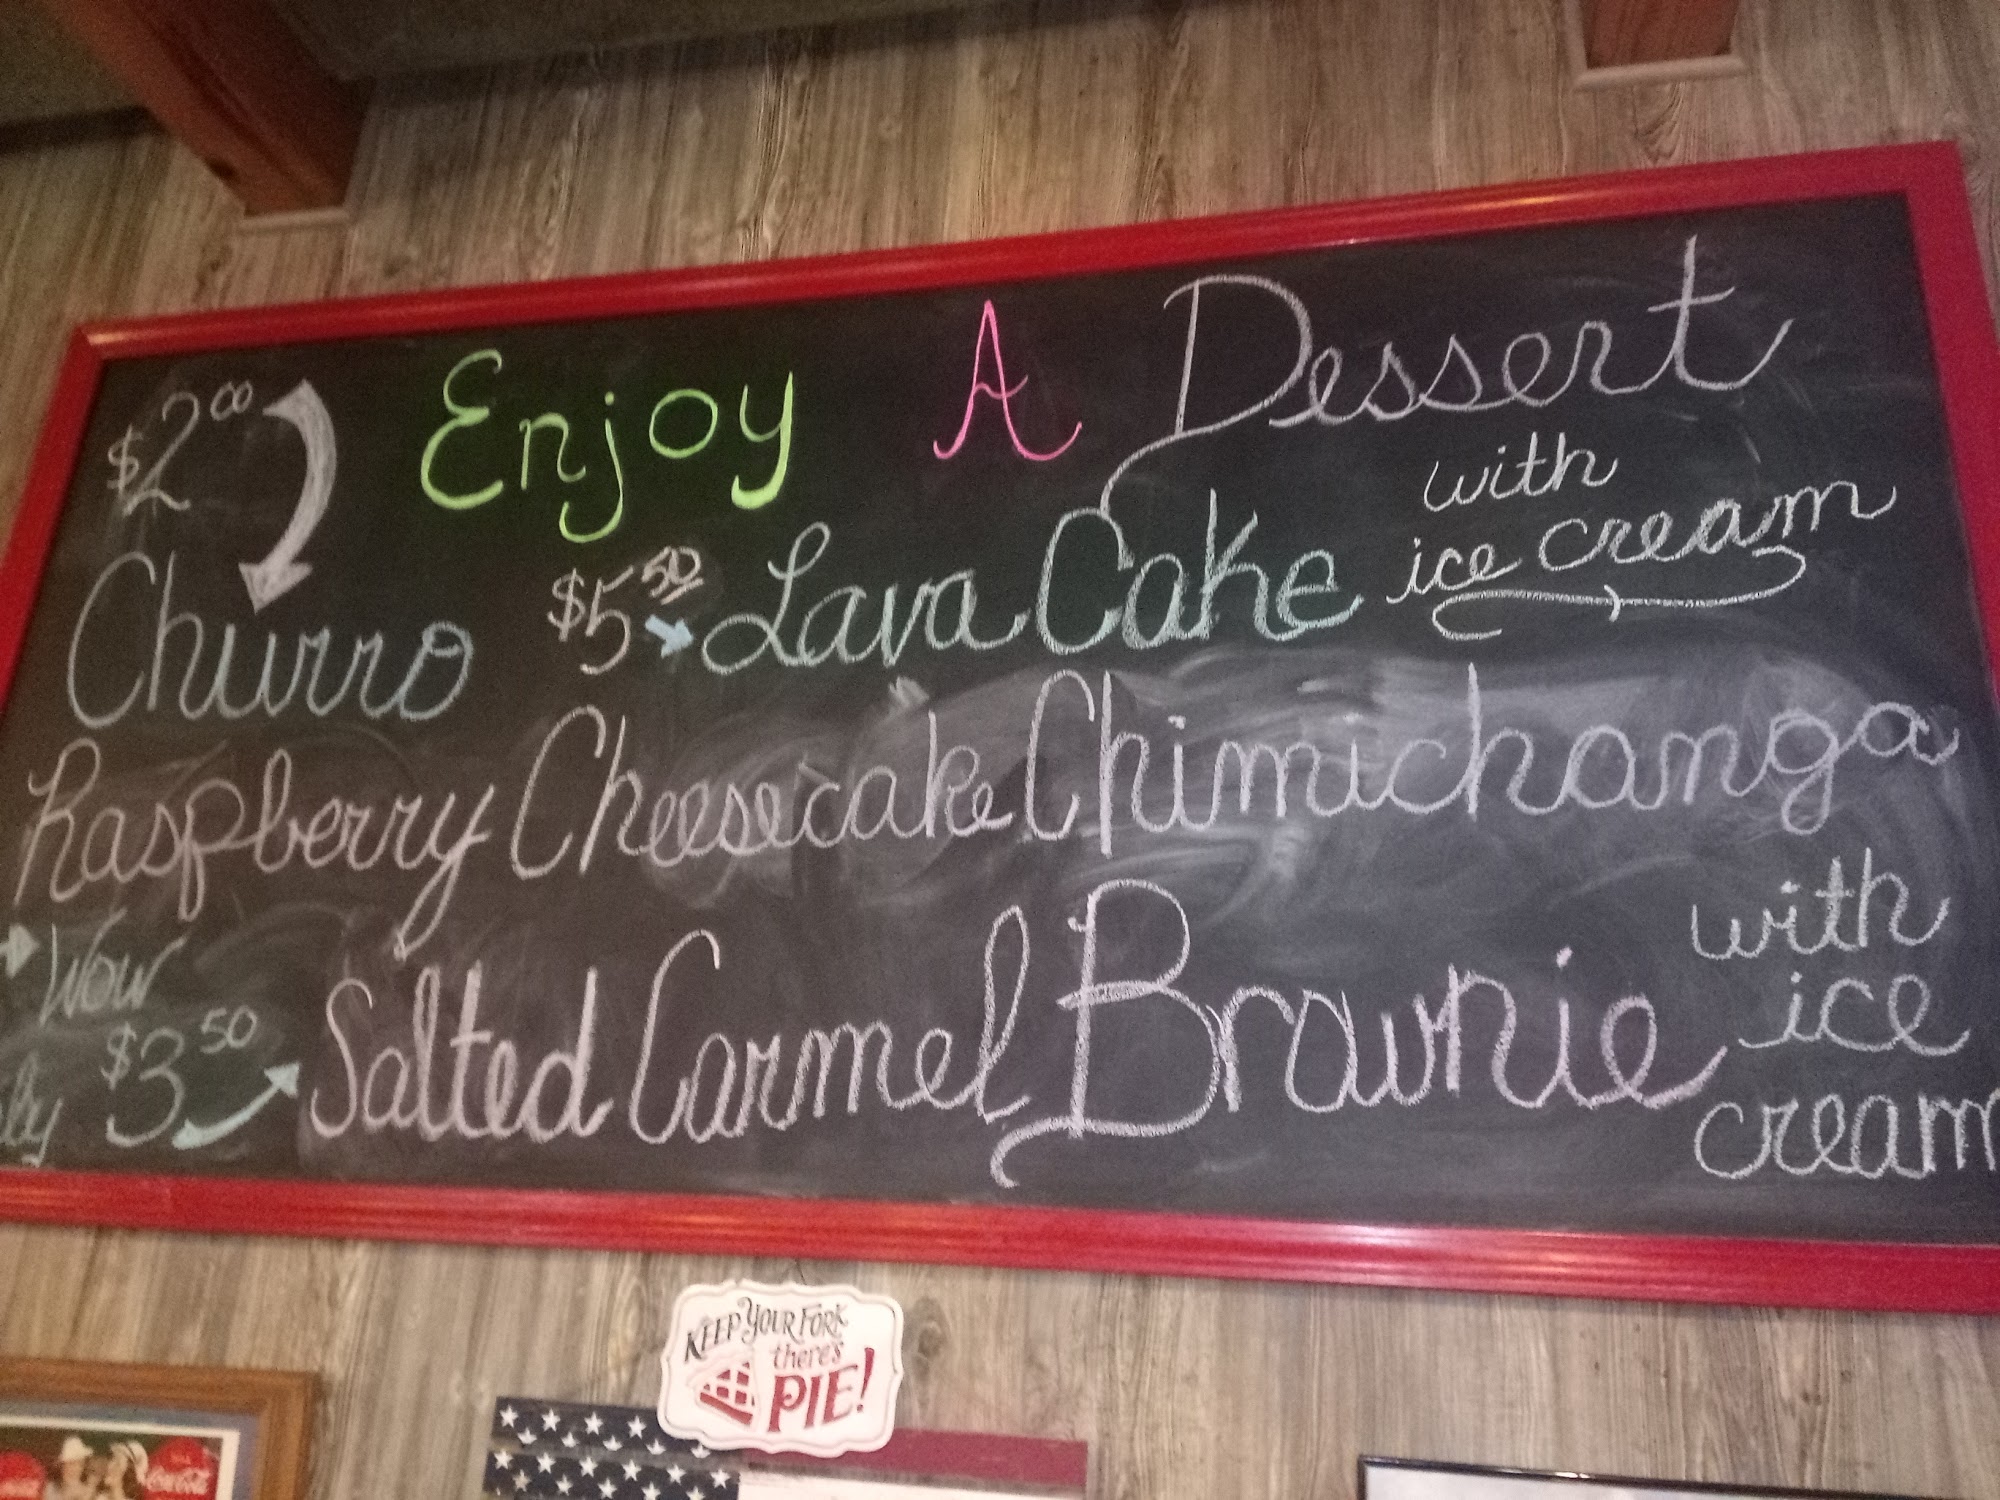 Enjoy A Dessert
$2.00
Churro
$5.50 Lava Cake with
ice cream
Raspberry Cheesecake Chimichanga
Wow
$3.50
Salted Carmel Brownie with
ice
cream
KEEP YOUR FORK
there's
PIE!
Coca-Cola